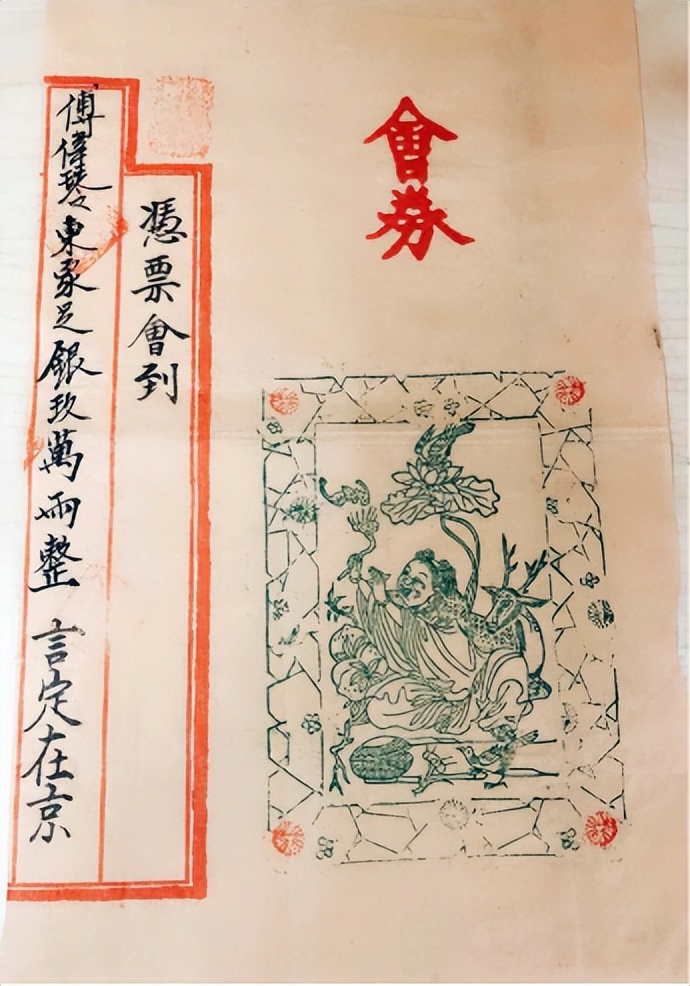 會券
憑票會到
傅偉琴東承足銀玖萬兩整 言定在京